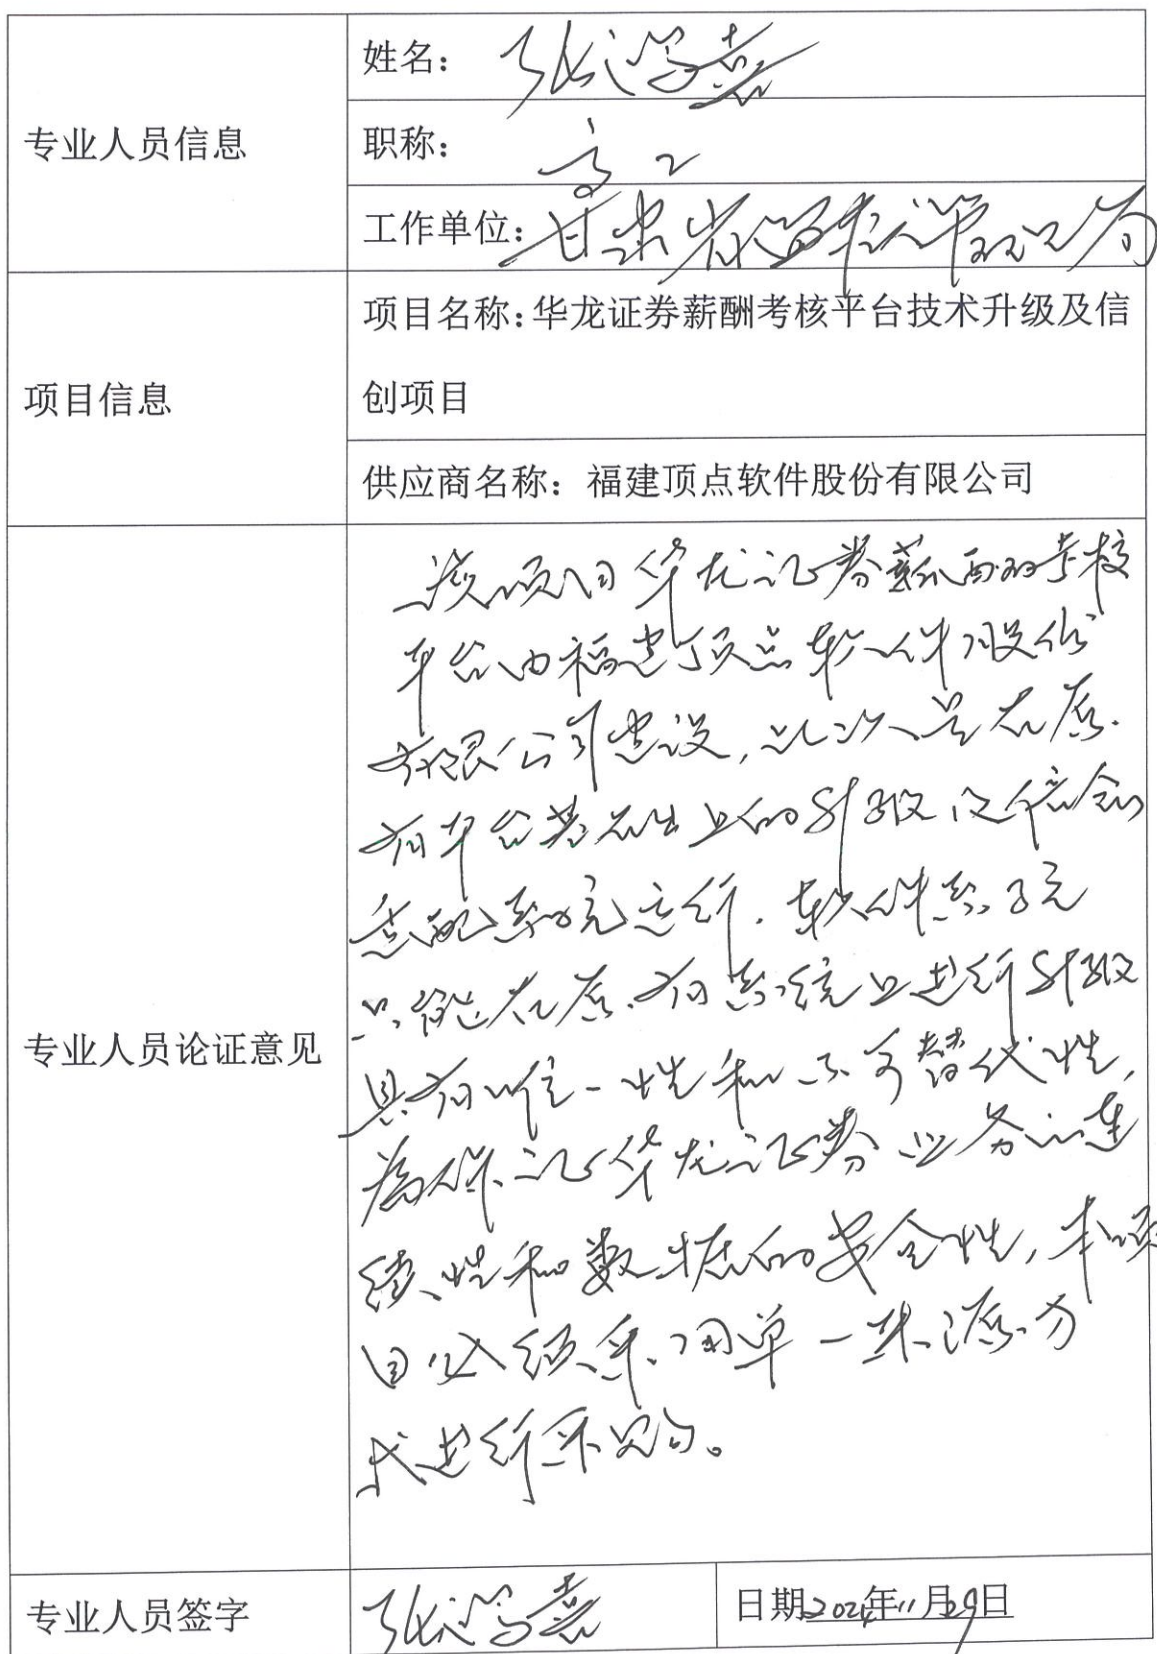 专业人员信息
姓名：张学嘉
职称：高工
工作单位：甘肃省通信管理局
项目信息
项目名称：华龙证券薪酬考核平台技术升级及信
创项目
供应商名称：福建顶点软件股份有限公司
专业人员论证意见
该项目华龙证券薪酬考核
平台由福建顶点软件股份
有限公司建设，此次是在原
有平台基础上的升级及信创
适配系统运行．软件系统
只能在原有系统上进行升级
具有唯一性和不可替代性，
为保证华龙证券业务连
续性和数据的安全性，本项
目必须采用单一来源方
式进行采购。
专业人员签字
张学嘉
日期2024年11月29日